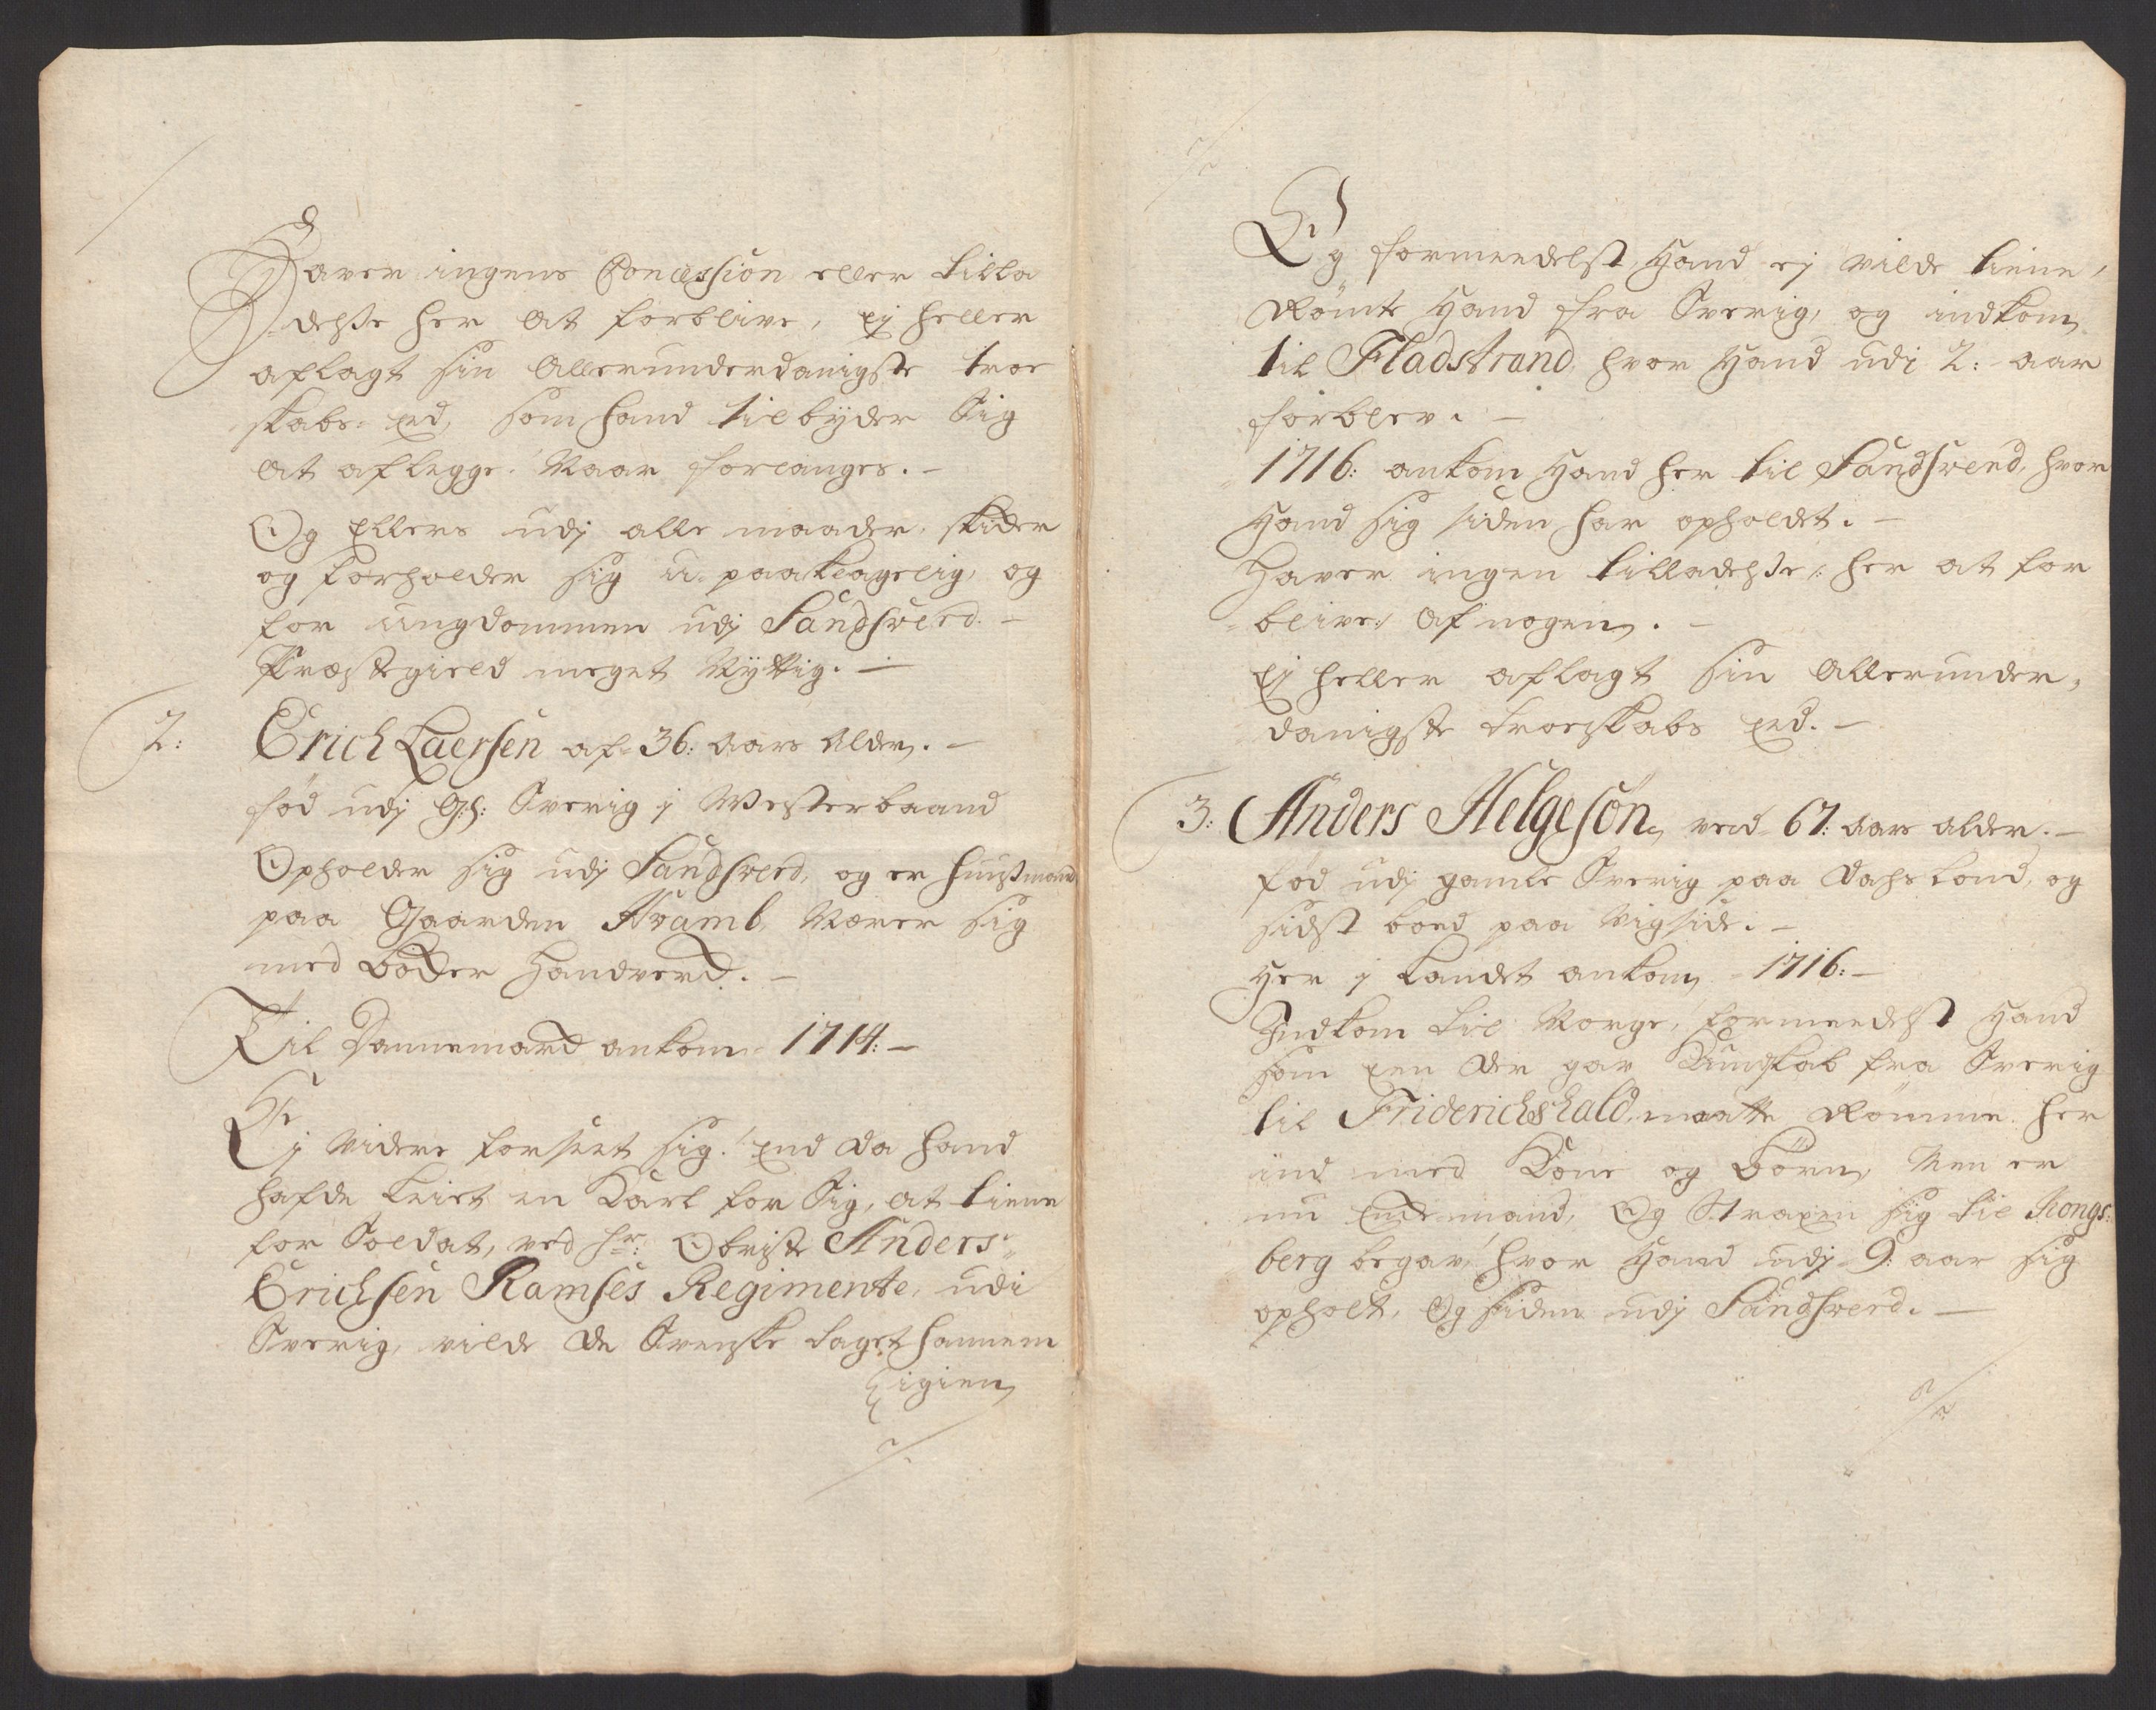 Haver ingens Concession eller tilla
delße her at forblive, ej heller
aflagt sin Allerunderdanigste troe
skabs: Eed, som hand tilbyder Sig
at aflegge. Naar forlanges. –
Og Ellers udj alle maader skicker
og forholder sig u-paaklagelig, og
for ungdommen udj Sandsverd. –
Præstegield meget Nyttig. –
2: Erich Laersen af 36: Aars Alder. –
fød udj Gl: Sverig j Westerbaand
Opholder sig udj Sandsverd, og er huußmand
paa Gaarden Kramb, Nærer sig
med bødker handverck. –
Til Dannemarck ankom 1714: –
Ej videre forseet sig. End da hand
hafde leiet en Karl for Sig, at tiene
for Soldat, ved hr: Obriste Anders
Erichsen Ramses Regimente, udi
Sverig, vilde de Svenske taget hannem
igien
Og formeedelst Hand ej vilde tiene,
Rømte Hand fra Sverig, og indkom
til Fladstrand, hvor Hand udi 2: aar
forblev. –
1716: ankom Hand her til Sandsverd, hvor
Hand sig siden har opholdet. –
Haver ingen tilladelße /: her at for
blive :/ af nogen. –
Ej heller aflagt sin Allerunder,
danigste troeskabs Eed. –
3: Anders Helgesøn, ved 67: Aars alder. –
fød udj gamle Sverig paa Dahsland, og
sidst boed paa Vigside. –
Her j Landet ankom 1716: –
Indkom til Norge, formeedelst Hand
som een der gav Kundskab fra Sverig
til Friderichshald, maatte Rømme her
ind med Kone og børn, Men er
nu Enckemand, Og Straxen sig til Kongs:
berg begav, hvor Hand udj 9: aar sig
opholt, Og siden udj Sandsverd. –